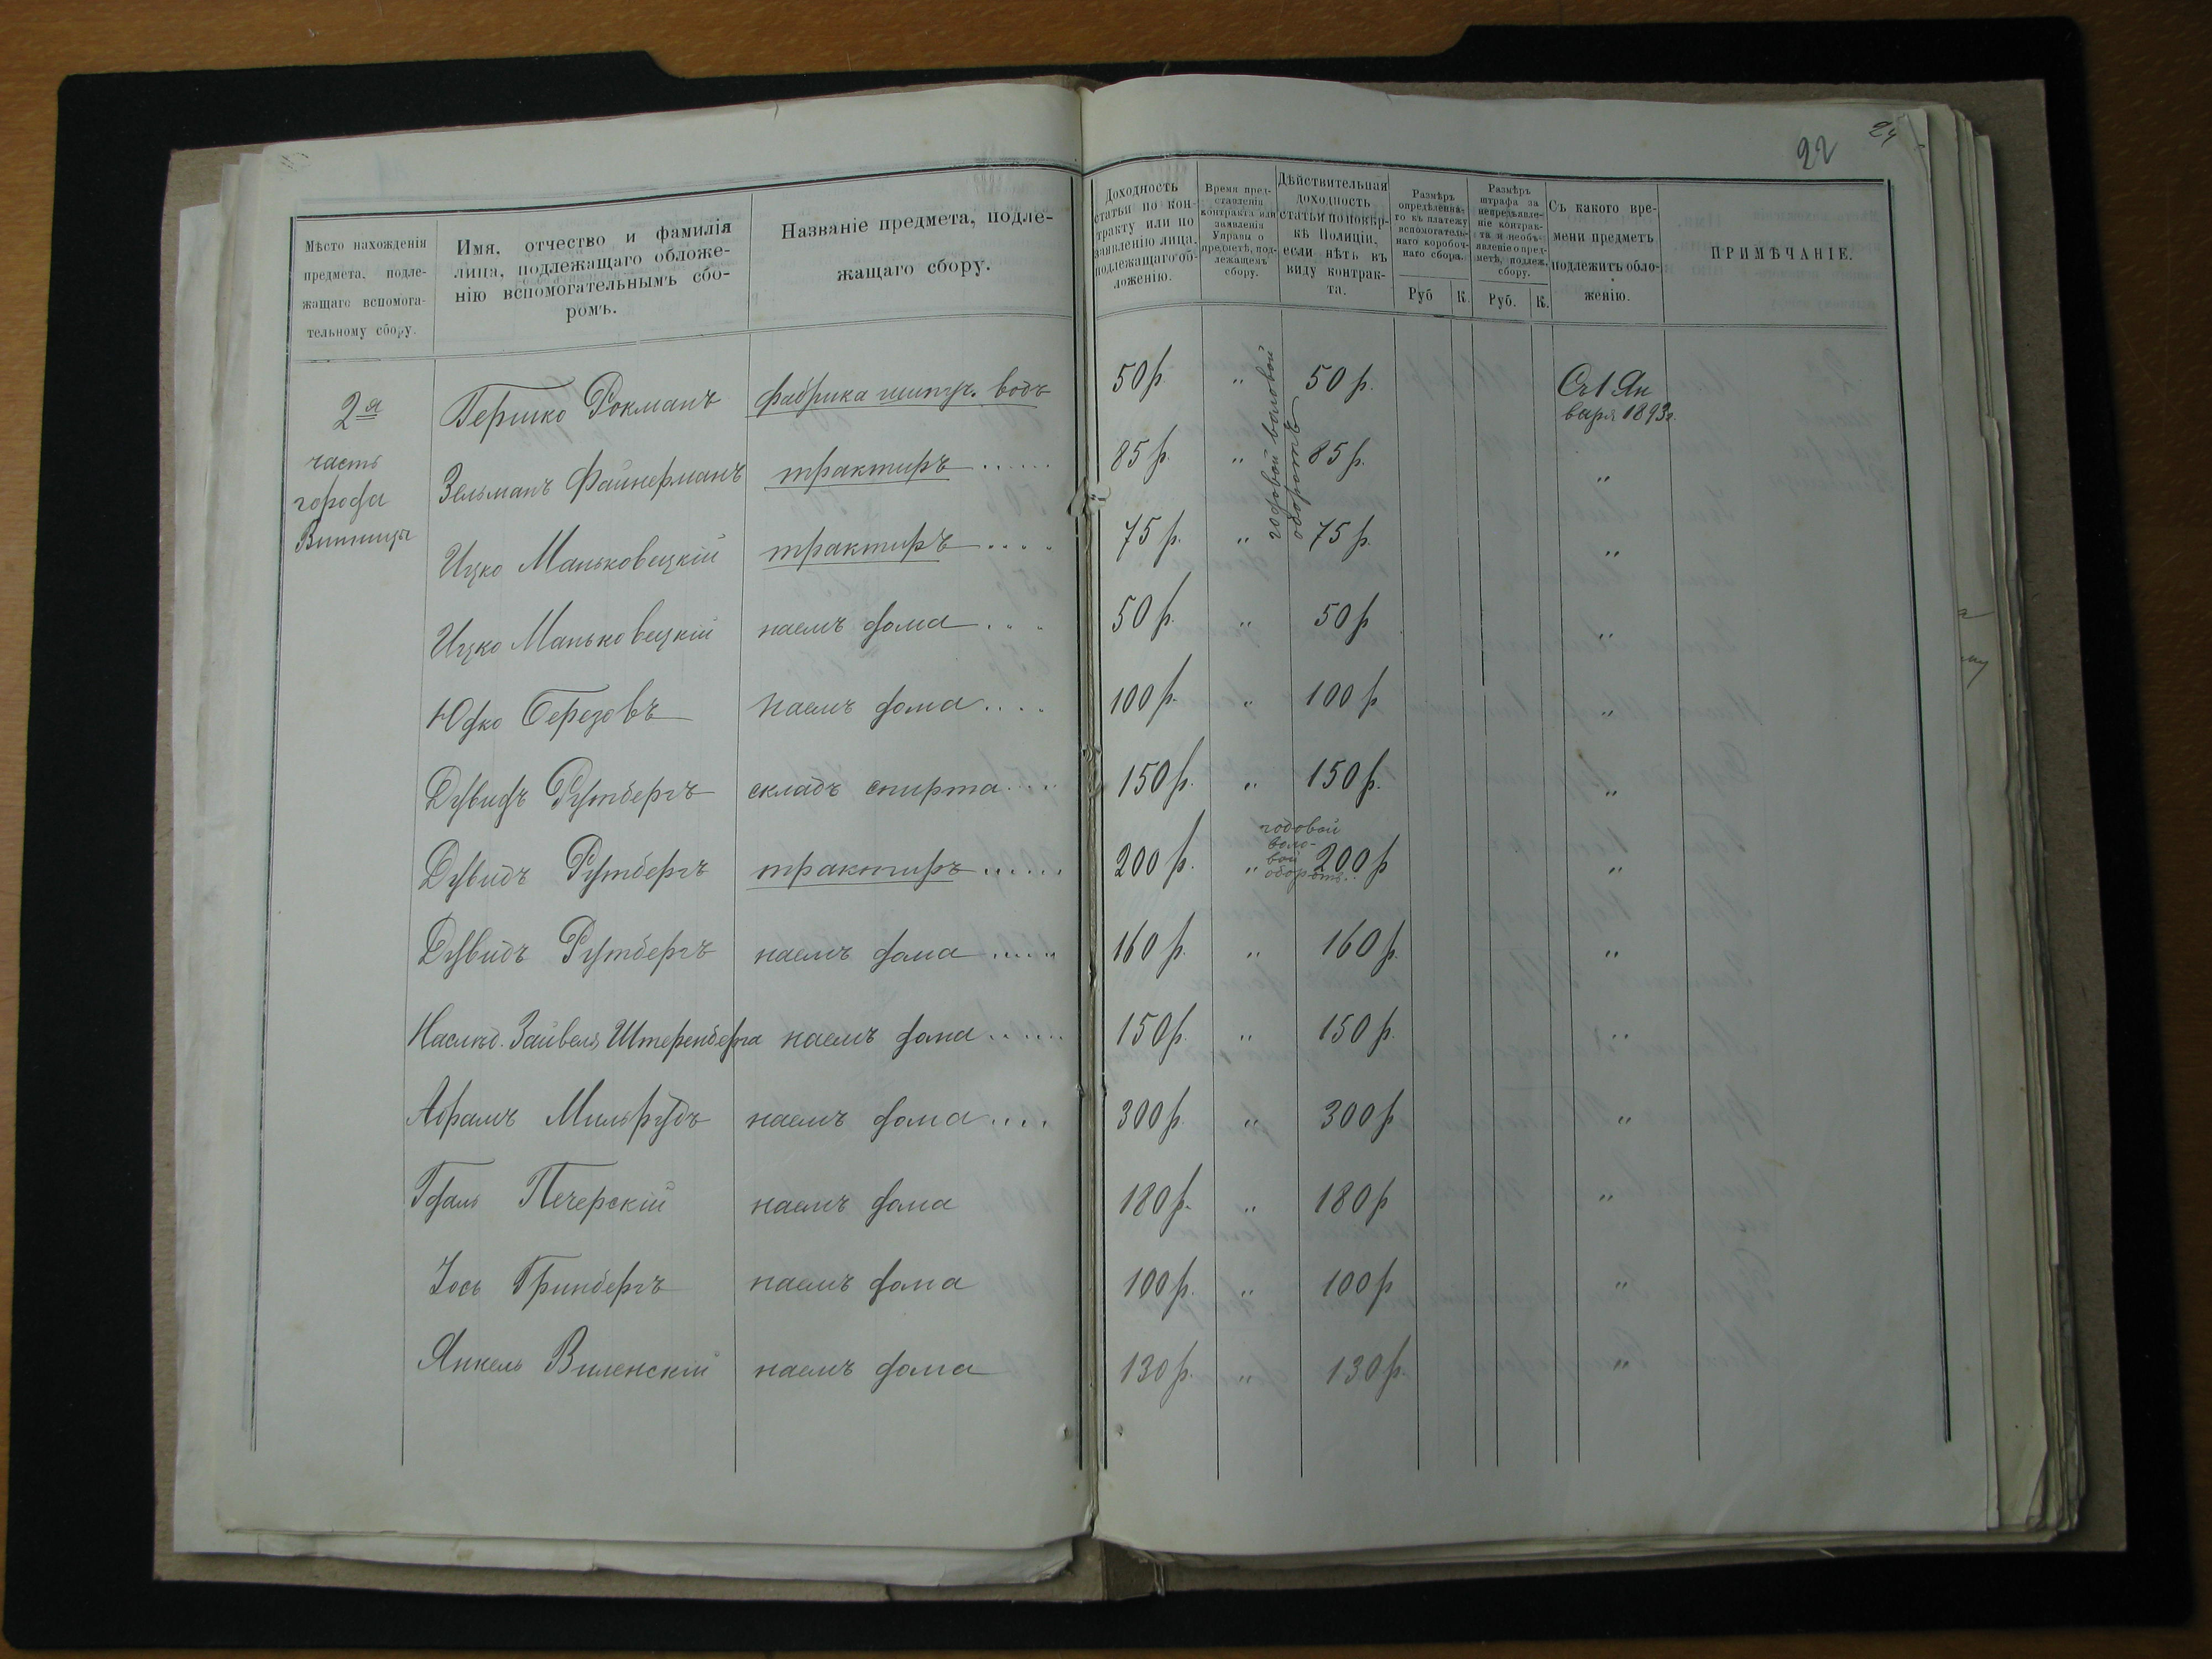 22
24
Мѣсто нахожденія
предмета, подле-
жащаго вспомога-
тельному сбору.
Имя, отчество и фамилія
лица, подлежащаго обложе-
нію вспомогательнымъ сбо-
ромъ.
Названіе предмета, подле-
жащаго сбору.
Доходность
статьи по кон-
тракту или по
заявленію лица,
подлежащаго об-
ложенію.
Время пред-
ставленія
контракта или
заявленія
Управы о
предметѣ, под-
лежащемъ
сбору.
Дѣйствительная
доходность
статьи по повѣр-
кѣ Полиціи,
если нѣтъ въ
виду контрак-
та.
Размѣръ
опредѣленна-
го къ платежу
вспомогатель-
наго коробоч-
наго сбора.
Руб К.
Размѣръ
штрафа за
непредъявле-
ніе контрак-
та и необъ-
явленіе о пред-
метѣ, подлеж.
сбору.
Руб. К.
Съ какого вре-
мени предметъ
подлежитъ обло-
женію.
ПРИМѢЧАНІЕ.
2я
часть
города
Винницы
годовой валовой
оборотъ
Гершко Рокманъ фабрика шипуч. водъ 50 р. " 50 р. Съ 1 Ян
варя 1893 г.
Зельманъ Файнерманъ трактиръ ...... 85 р. " 85 р. "
Ицко Маньковецкій трактиръ .... 75 р. " 75 р. "
Ицко Маньковецкій наемъ дома ... 50 р. " 50 р "
Юдко Березовъ наемъ дома .... 100 р. " 100 р "
Дувидъ Рутбергъ складъ спирта .... 150 р. " 150 р. "
годовой
вало-
вой
оборотъ.
Дувидъ Рутбергъ трактиръ ...... 200 р. " 200 р "
Дувидъ Рутбергъ наемъ дома ..... 160 р. " 160 р. "
Наслѣд. Зайвеля Штеренберга наемъ дома ...... 150 р. " 150 р. "
Абрамъ Мильрудъ наемъ дома .... 300 р. " 300 р "
Гдаль Печерскій наемъ дома 180 р. " 180 р "
Іось Гринбергъ наемъ дома 100 р. " 100 р "
Янкель Виленскій наемъ дома 130 р. " 130 р. "